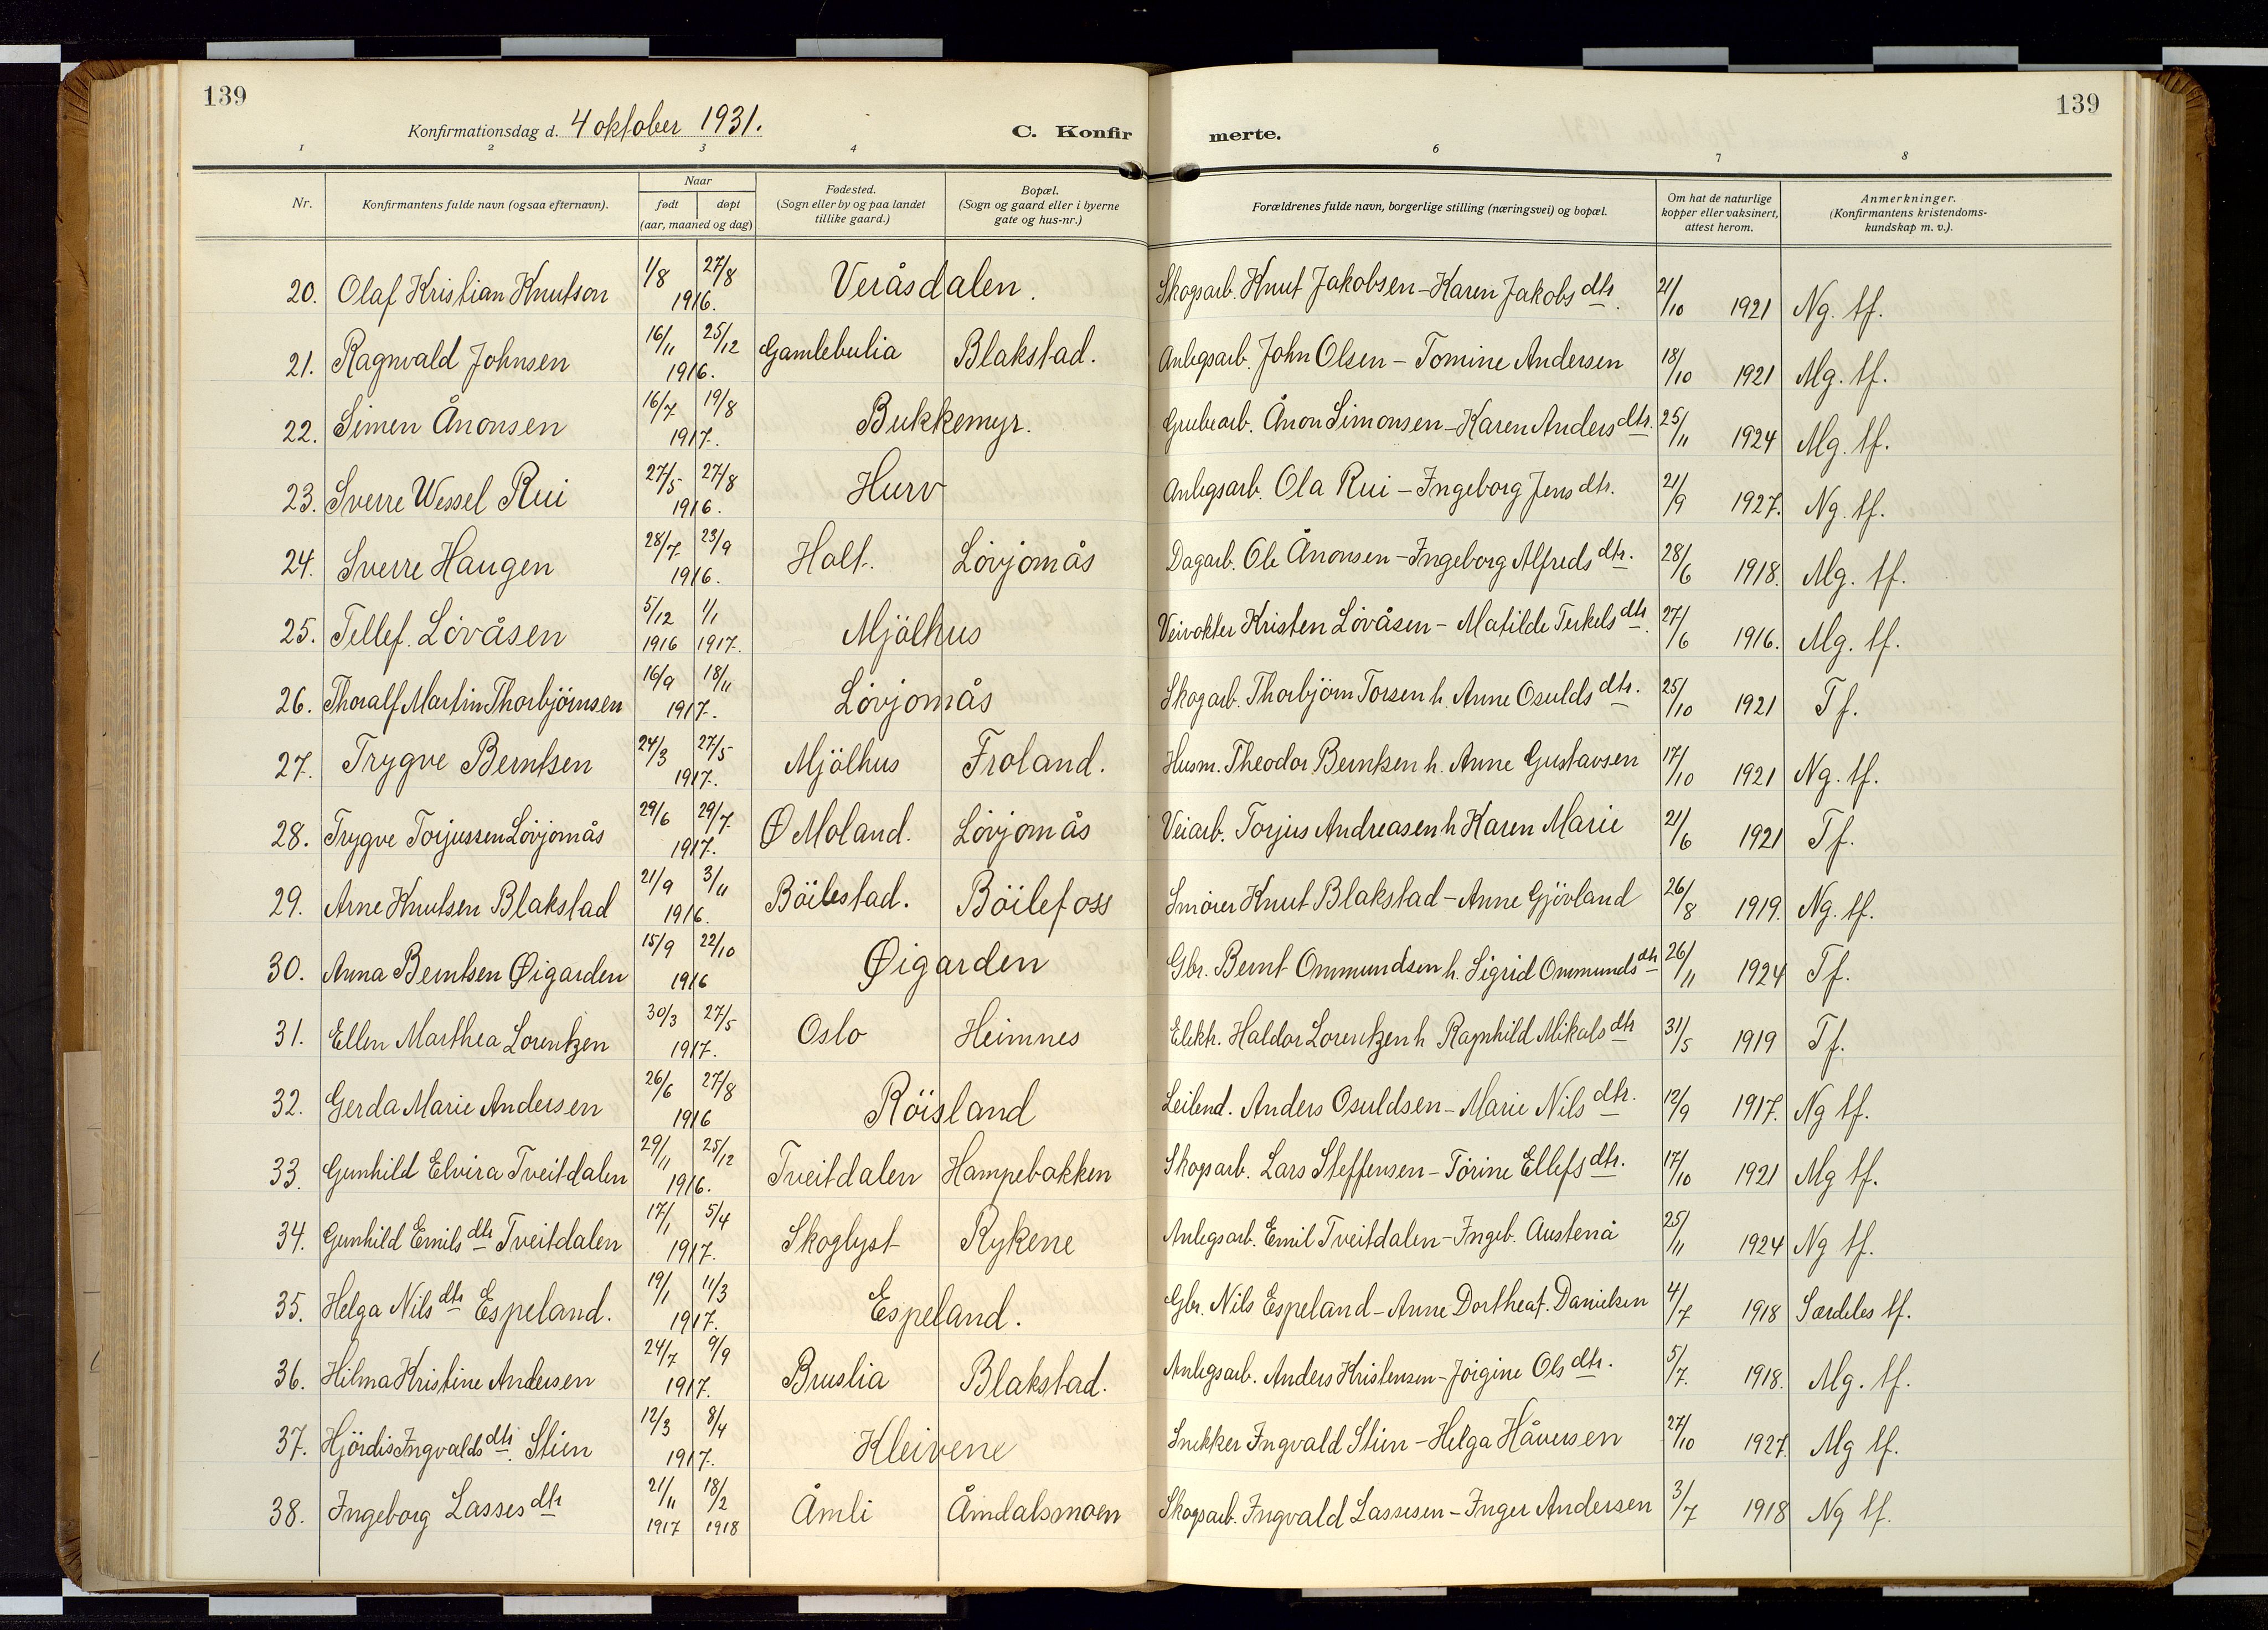 139
139
Konfirmationsdag d. 4 oktober 1931.
C. Konfirmerte.
1 2 3 4 6 7 8
Nr.
Konfirmantens fulde navn (ogsaa efternavn).
Naar
født døpt
(aar, maaned og dag)
Fødested.
(Sogn eller by og paa landet
tillike gaard.)
Bopæl.
(Sogn og gaard eller i byerne
gate og hus-nr.)
Forældrenes fulde navn, borgerlige stilling (næringsvei) og bopæl.
Om hat de naturlige
kopper eller vaksinert,
attest herom.
Anmerkninger.
(Konfirmantens kristendoms-
kundskap m. v.).
20. Olaf Kristian Knutson 1/8 27/8 1916. Veråsdalen. Skogsarb. Knut Jakobsen - Karen Jakobsdtr. 21/10 1921 Ng. tf.
21. Ragnvald Johnsen 16/11 25/12 1916. Gamlebulia Blakstad. Anlegsarb. John Olsen - Tomine Andersen 18/10 1921 Mg. tf.
22. Simen Ånonsen 16/7 19/8 1917. Bukkemyr. Grubearb. Ånon Simonsen - Karen Andersdtr. 25/11 1924 Mg. tf.
23. Sverre Wessel Rui 27/5 27/8 1916. Hurv Anlegsarb. Ola Rui - Ingeborg Jensdtr. 21/9 1927. Ng. tf.
24. Sverre Haugen 28/7 23/9 1916. Holt. Lövjomås Dagarb. Ole Ånonsen - Ingeborg Alfredsdtr. 28/6 1918. Mg. tf.
25. Tellef. Lövåsen 5/12 1916 1/1 1917. Mjölhus Veivokter Kristen Lövåsen - Matilde Terkelsdtr. 27/6 1916. Mg. tf.
26. Thoralf Martin Thorbjörnsen 16/9 18/11 1917. Lövjomås Skogarb. Thorbjörn Torsen h. Anne Osuldsdtr. 25/10 1921 Tf.
27. Trygve Berntsen 24/3 27/5 1917. Mjölhus Froland. Husm. Theodor Berntsen h. Anne Gustavsen 17/10 1921 Ng. tf.
28. Trygve Torjussen Lövjomås 29/6 29/7 1917. Ø Moland. Lövjomås Veiarb. Torjus Andreasen h Karen Marie 21/6 1921 Tf.
29. Arne Knutsen Blakstad 21/9 3/11 1916. Böilestad. Böilefoss Smörer Knut Blakstad - Anne Gjövland 26/8 1919. Ng. tf.
30. Anna Berntsen Øigarden 15/9 22/10 1916 Øigarden Gbr. Bernt Ommundsen h. Sigrid Ommundsdtr 26/11 1924 Tf.
31. Ellen Marthea Lorentzen 30/3 27/5 1917. Oslo Heimnes Elektr. Haldor Lorentzen h Ragnhild Mikalsdtr 31/5 1919 Tf.
32. Gerda Marie Andersen 26/6 27/8 1916 Röisland Leilend. Anders Osuldsen - Marie Nilsdtr. 12/9 1917. Ng tf.
33. Gunhild Elvira Tveitdalen 29/11 25/12 1916. Tveitdalen Hampebakken Skogsarb. Lars Steffensen - Törine Ellefsdtr. 17/10 1921 Mg tf.
34. Gunhild Emilsdtr Tveitdalen 17/1 5/4 1917. Skoglyst Rykene Anlegsarb. Emil Tveitdalen - Ingeb. Austenå 25/11 1924 Ng tf.
35. Helga Nilsdtr Espeland. 19/1 11/3 1917. Espeland. Gbr. Nils Espeland - Anne Dorthea f. Danielsen 4/7 1918 Særdeles tf.
36. Hilma Kristine Andersen 24/7 9/9 1917. Bruslia Blakstad. Anlegsarb. Anders Kristensen - Jörgine Olsdtr. 5/7. 1918. Mg. tf.
37. Hjördis Ingvaldsdtr. Stien 12/3 8/4 1917. Kleivene Snekker Ingvald Stien - Helga Håversen 27/10 1927. Mg tf.
38. Ingeborg Lassesdtr 21/11 1917 18/2 1918 Åmli Åmdalsmoen Skogsarb. Ingvald Lassesen - Inger Andersen 3/7 1918 Ng tf.